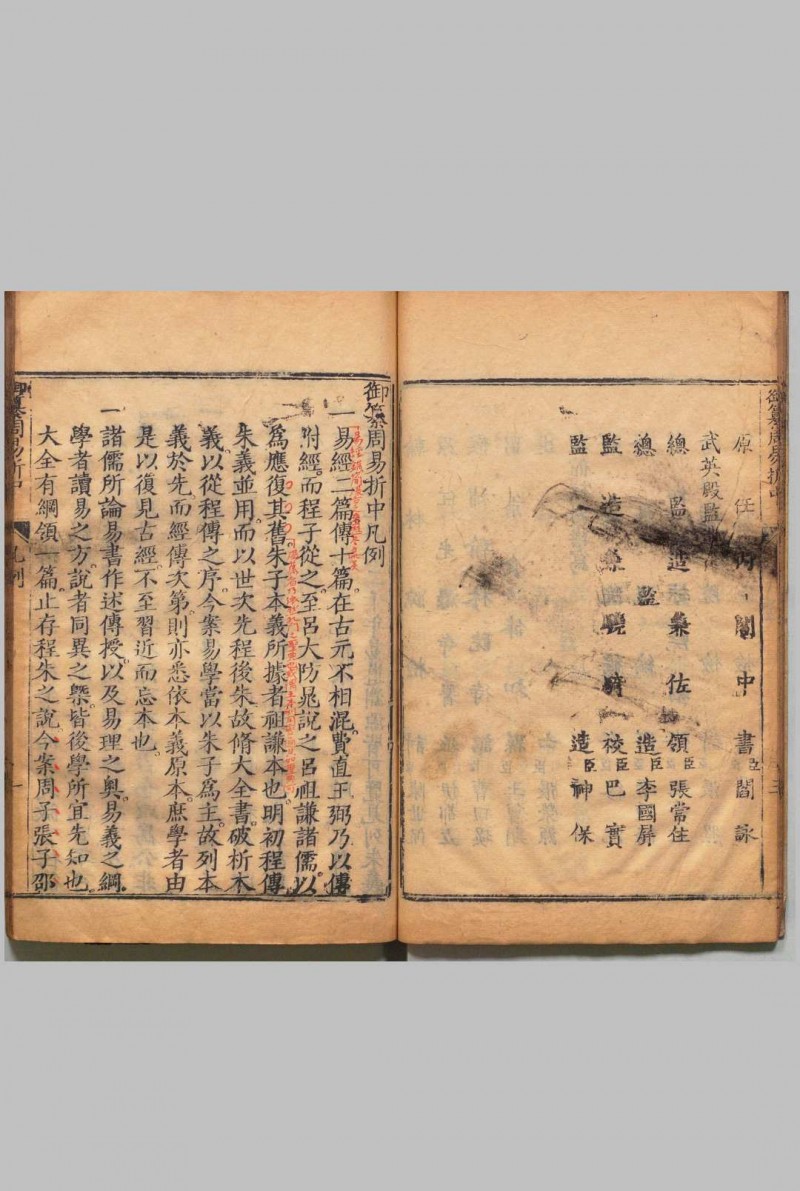 御纂周易折中
原任 內閣中書臣閻詠
武英殿監
總監造 兼佐領臣張常住
總監 造臣李國屏
監造兼驍騎校臣巴實
監 造臣神保
御纂周易折中凡例
一易經二篇傳十篇。在古元不相混。費直王弼乃以傳
附經。而程子從之。至呂大防晁說之呂祖謙諸儒。以
爲應復其舊。朱子本義所據者。祖謙本也。明初程傳
朱義並用。而以世次先程後朱。故脩大全書。破析本
義。以從程傳之序。今案易學當以朱子爲主。故列本
義於先。而經傳次第。則亦悉依本義原本。庶學者由
是以復見古經。不至習近而忘本也。
一諸儒所論易書作述傳授。以及易理之奧。易義之綱。
學者讀易之方。說者同異之槩。皆後學所宜先知也。
大全有綱領一篇。止存程朱之說。今案周子張子邵
御纂周易折中 凡例 一